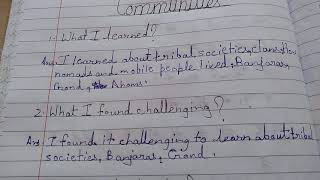 Communities
1. What I learned?
Ans I learned about tribal societies, clans, how
nomads and mobile people lived, Banjaras,
Gond, Ahoms.
2. What I found challenging?
Ans I found it challenging to learn about tribal
societies, Banjaras, Gond.